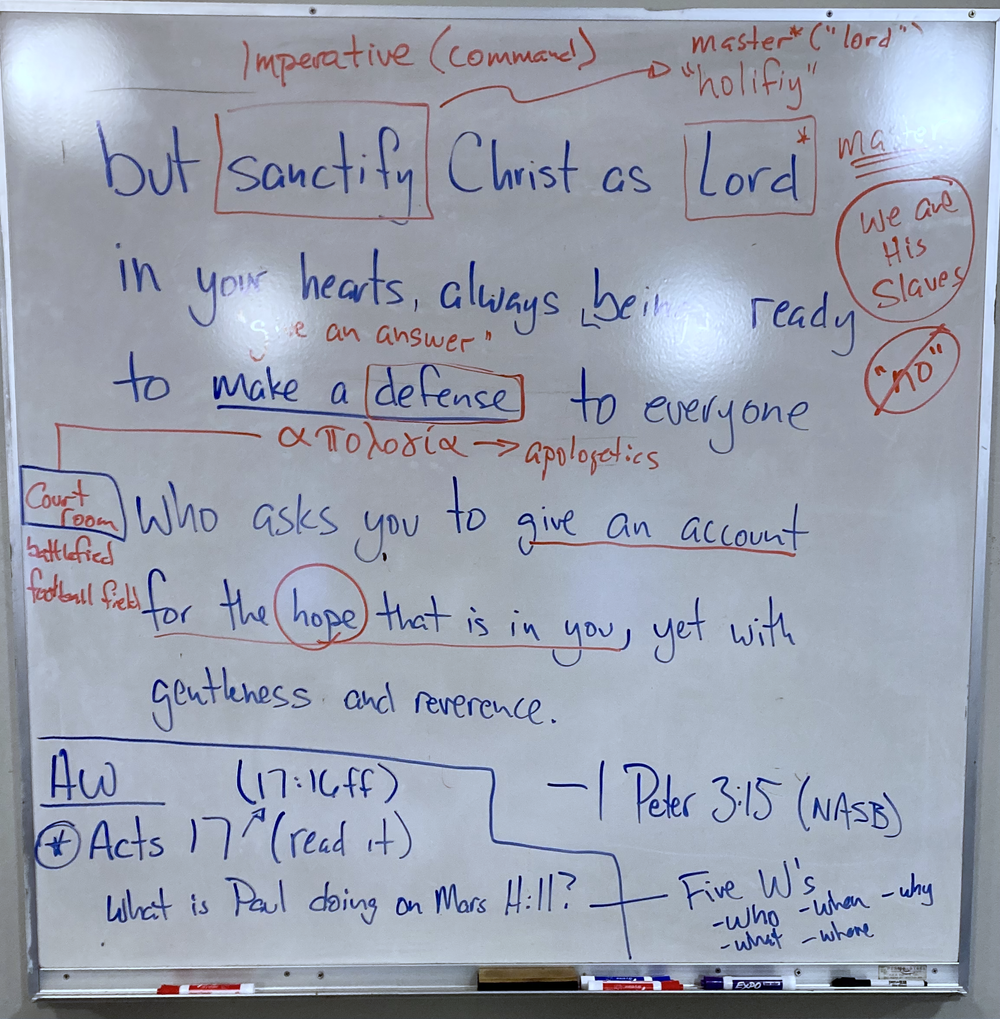 Imperative (command)
master* ("lord")
"holifiy"
but sanctify Christ as Lord*
master
We are
His
Slaves
in your hearts, always being ready
"give an answer"
"no"
to make a defense to everyone
απολογία → apologetics
Court
room
battlefied
football field
Who asks you to give an account
for the hope that is in you, yet with
gentleness and reverence.
AW
(17:16ff)
— 1 Peter 3:15 (NASB)
* Acts 17 (read it)
What is Paul doing on Mars Hill?
Five W's
-who -when -why
-what -where
EXPO